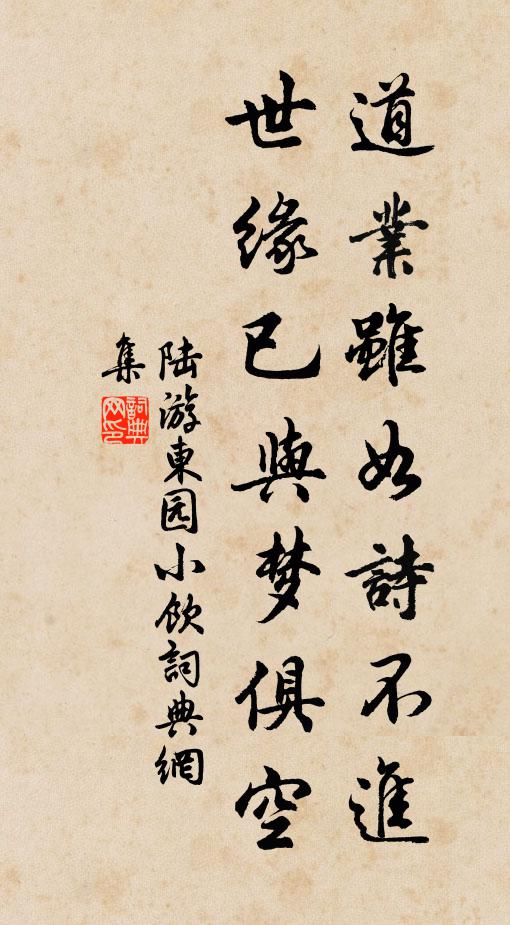 道業雖如詩不進
世緣已與梦俱空
陆游東园小飲詞典網
集
詞典
网印